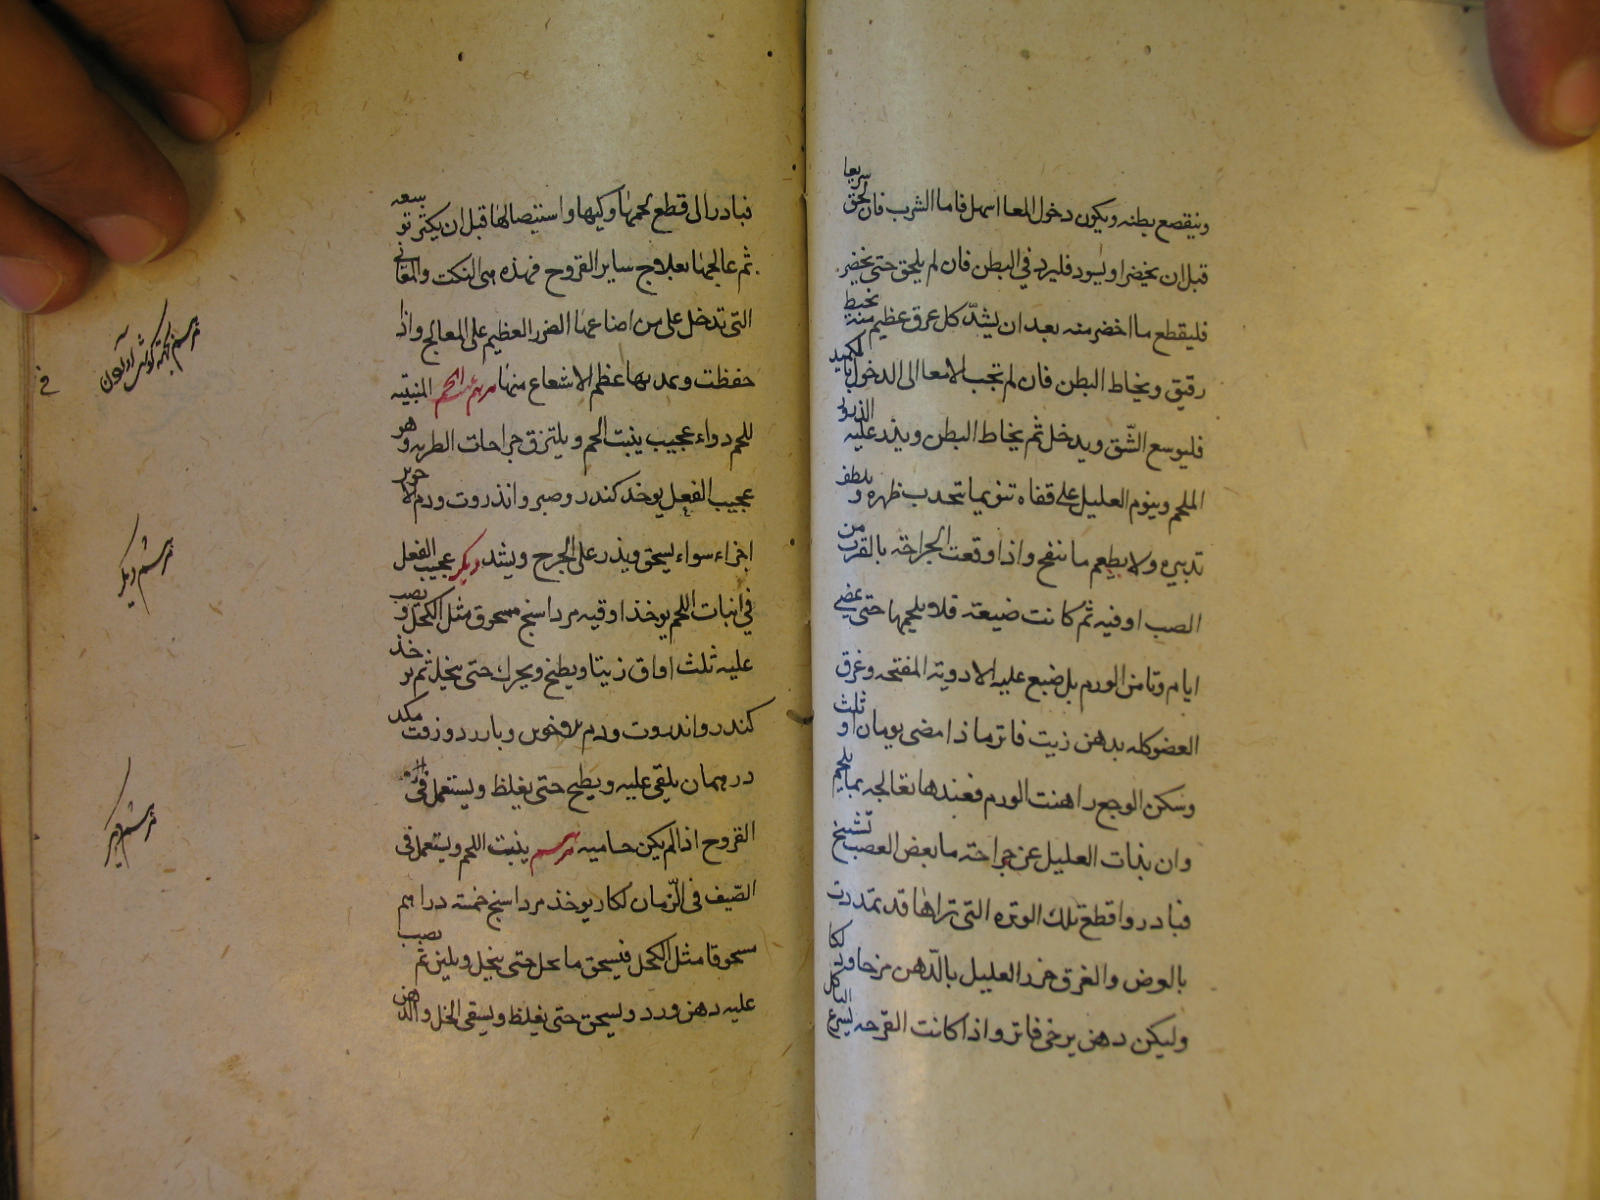 وينقصع بطنه ويكون دخول المعا اسهل فاما الشرب فان لحق سريعا
قبل ان يخضر او يسود فليرد في البطن فان لم يلحق حتى يخضر
فليقطع ما اخضر منه بعد ان يشدّ كل عرق عظيم منه بخيط
رقيق ويخاط البطن فان لم تجب الامعا الى الدخول
فليوسع الشّق ويدخل ثم يخاط البطن ويذر عليه الذرور
الملحم وينوم العليل على قفاه تنويما تحدب ظهره و يلطف
تدبيره ولا يطعم ما ينفخ واذا وقعت الجراحة بالقرب من
العصب او فيه ثم كانت ضيعته فلا يلحمها حتى يمضي
ايام وتامن الورم بل ضع عليه الادوية المفتحه وغرق
العضو كله بدهن زيت فاتر ماذا مضى يومان او ثلث
وسكن الوجع راهنت الورم فعندها تعالجه بما يلحم
وان بذات العليل عن جراحته ما بعض العصب تشنج
فبادر واقطع تلك الوتره التي تراها قد تمددت
بالعرض والغرق خرز العليل بالدّهن مرخا
وليكن دهن يرخى فاتر واذا كانت القرحه يسرع التاكل
فبادر الى قطع لحمها وكيها واستيصالها قبل ان يكثر
ثم عالجها بعلاج ساير القروح فهذه هى النكت والمعانى
التى تدخل على من اضاعها الضرر العظيم على المعالج واذا
حفظت وعمد بها عظم الاشعاع منها مرهم المنبته
للحم دواء عجيب ينبت اللحم ويلتزق جراحات الطريه وهو
عجيب الفعل يوخذ كندر وصبر وانذروت ودم الاخوين
اجزاء سواء يسحق ويذر على الجرح ويشد ديكر عجيب الفعل
فى انبات اللحم يوخذ اوقيه مرداسنج مسحوق مثل الكحل و يصب
عليه ثلث اواق زيتا ويطبخ ويحرك حتى ينحل ثم يوخذ
كندر وانذروت ودم الاخوين وبارزد وزفت مكد
درهمان يلقى عليه ويطبخ حتى يغلظ ويستعمل فى
القروح اذا لم يكن حاميه مرهم ينبت اللحم ويستعمل فى
الصّيف فى الزّمان الحار يوخذ مرداسنج خمسة دراهم
مسحوقا مثل الكحل فيسحق ما بخل حتى ينحل ويلين ثم يصب
عليه دهن ورد ويسحق حتى يغلظ ويسقى الخل والدهن
مرهم جهة كوشت آوردن
فى
مرهم ديكر
مرهم ديكر